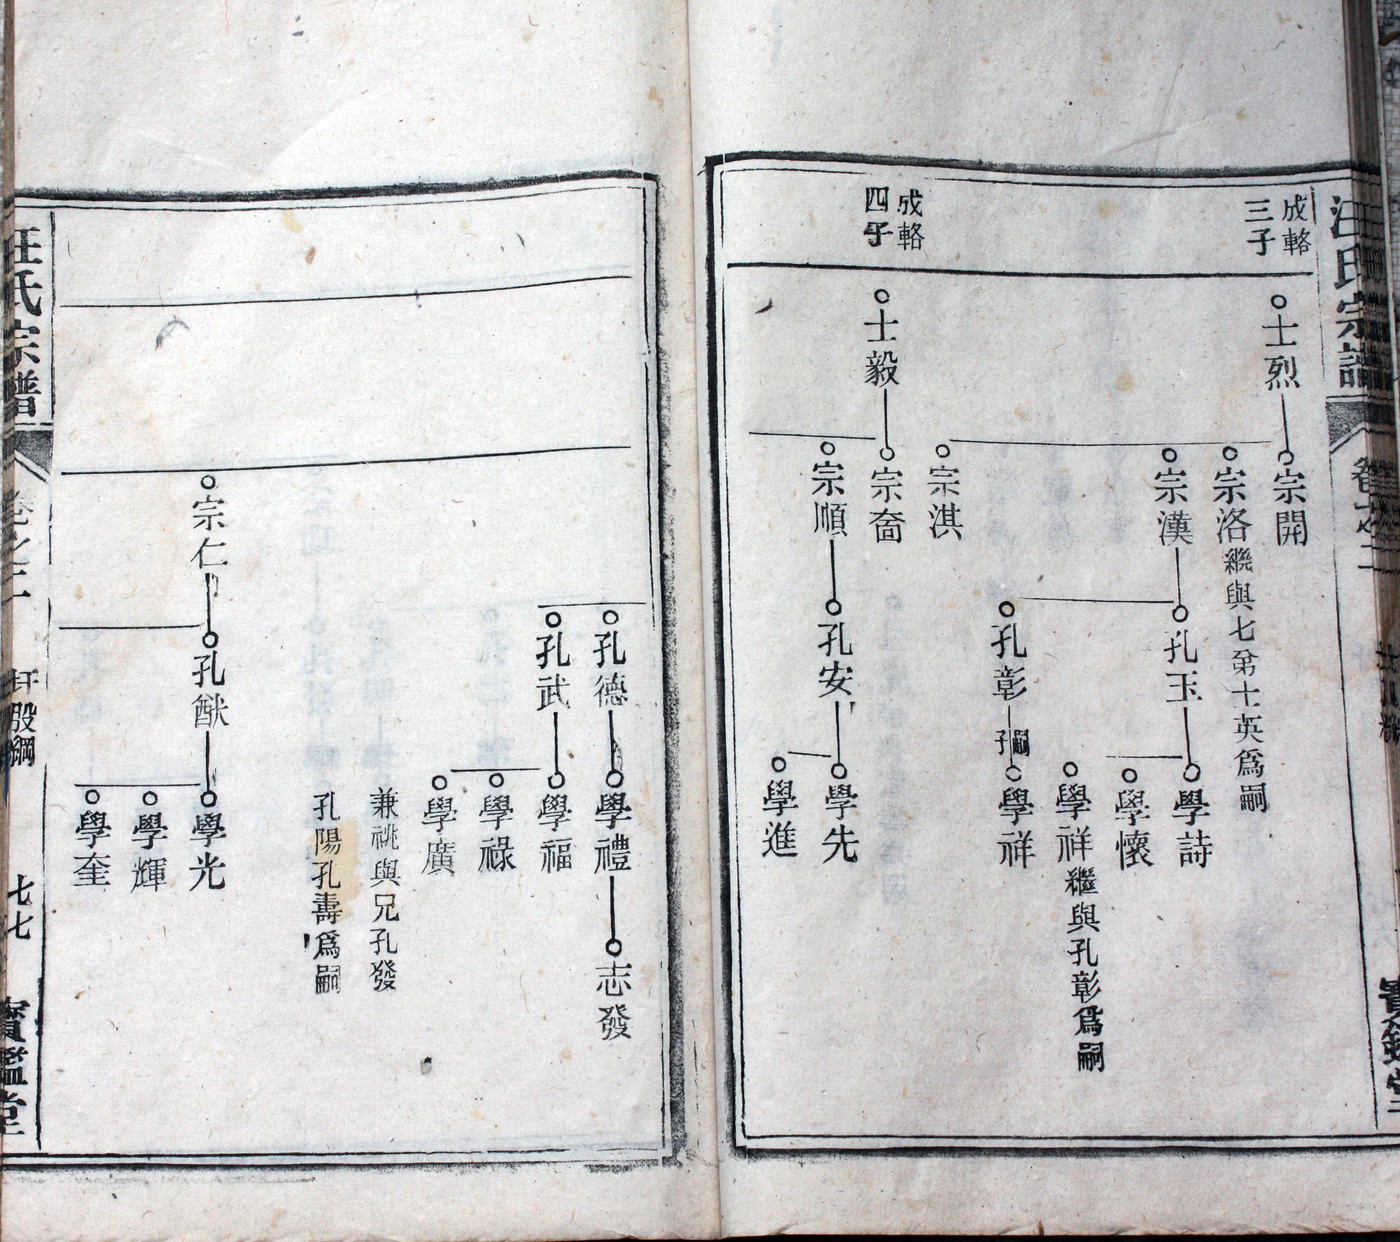 汪氏宗譜
卷之二
成輅
三子
士烈
宗開
宗洛繼與七弟士英爲嗣
宗漢
宗淇
孔玉
孔彰
嗣
子
學詩
學懷
學祥繼與孔彰爲嗣
學祥
成輅
四子
士毅
宗奮
宗順
孔安
學先
學進
孔德
孔武
學禮
學福
學祿
學廣
志發
兼祧與兄孔發
孔陽孔壽爲嗣
宗仁
孔猷
學光
學輝
學奎
汪氏宗譜
卷之二
股綱
七七
寶鑑堂